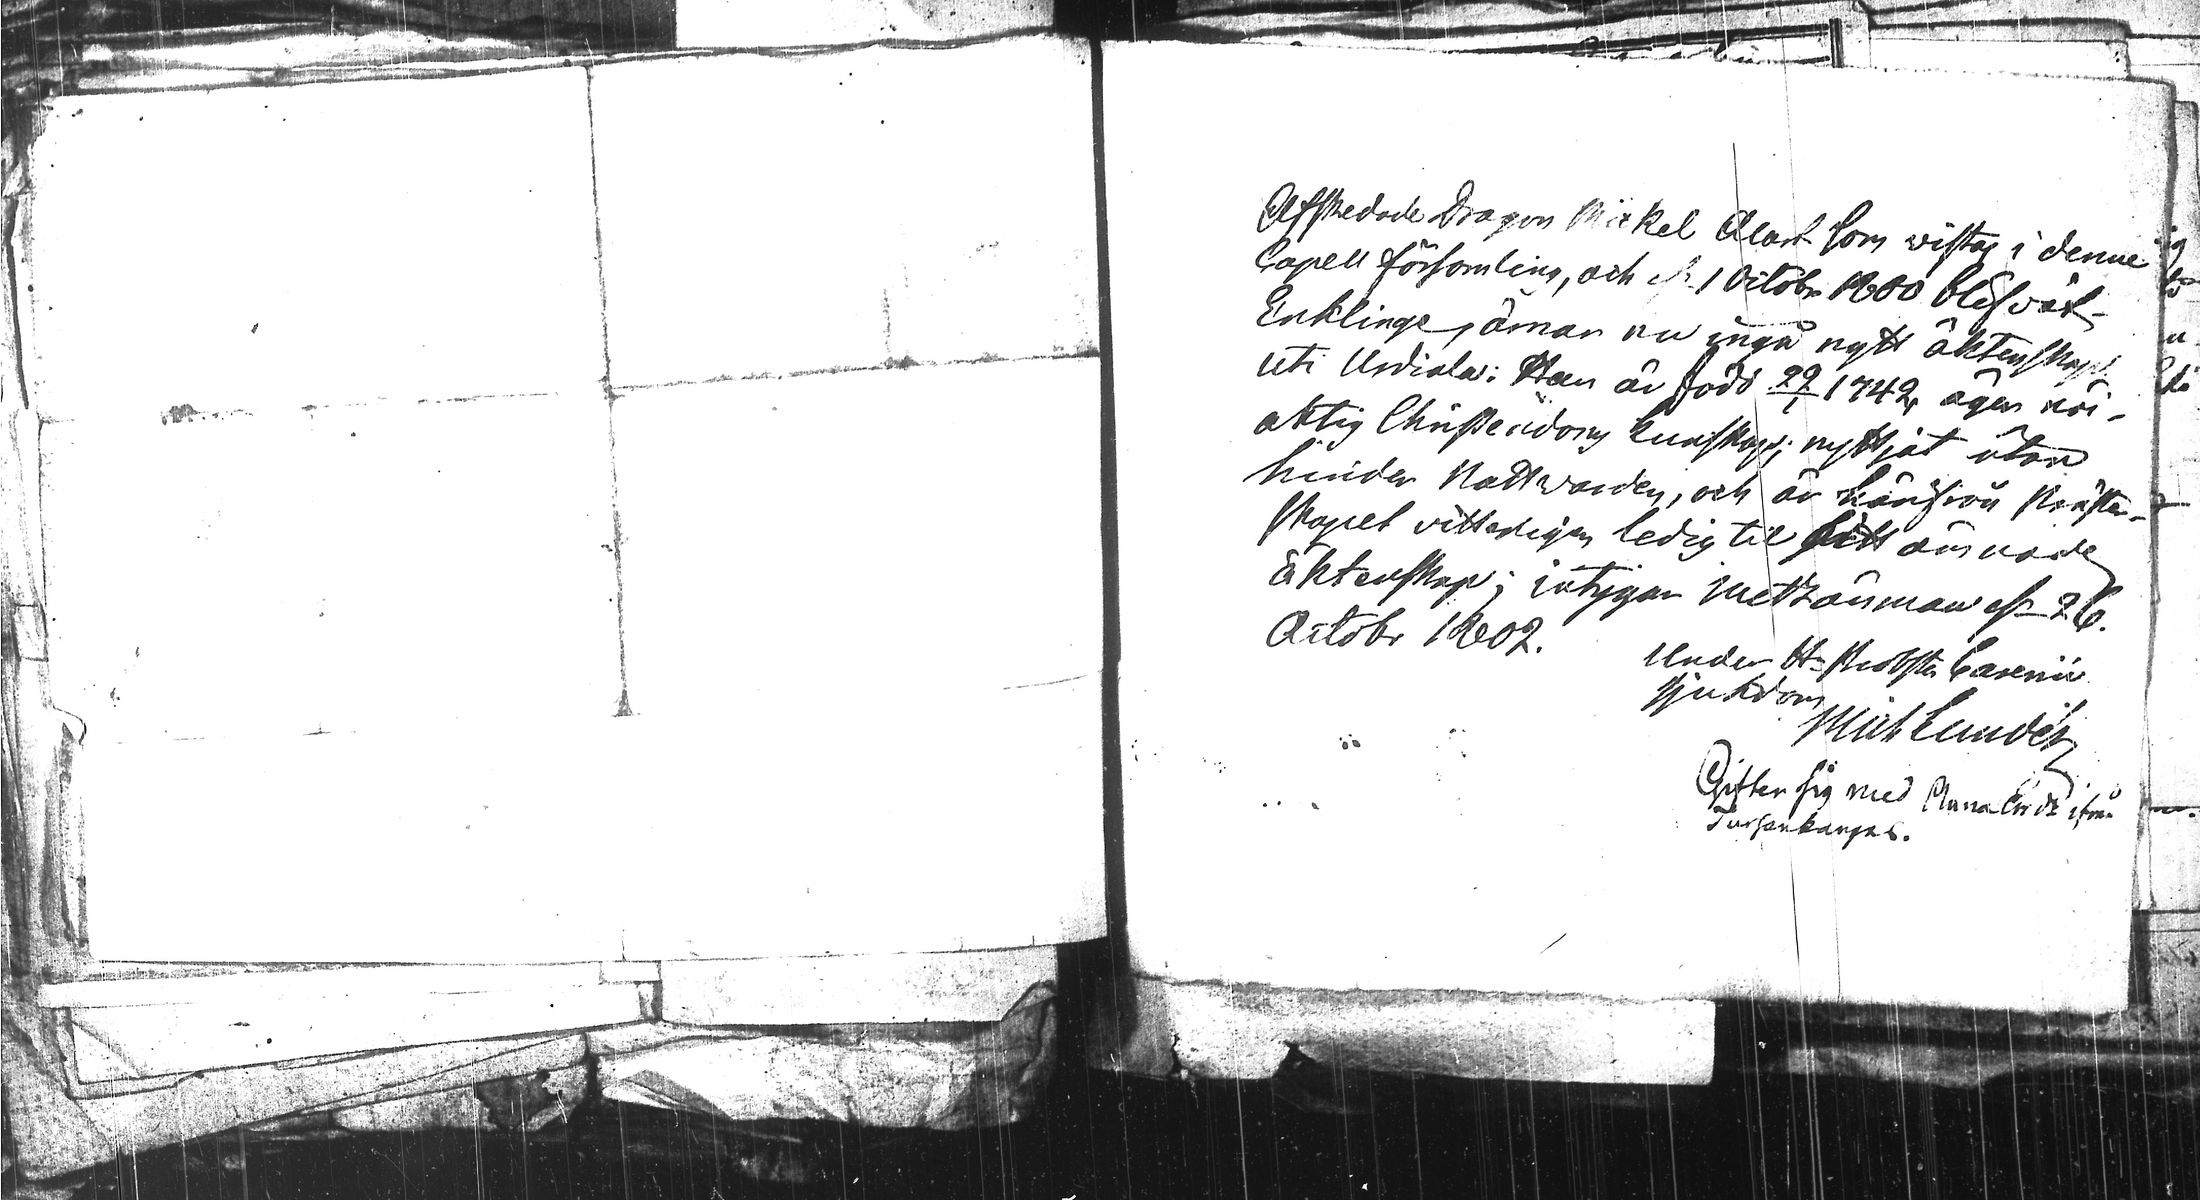 Afskedade Dragon Mickel Alart som vistas i denne
Capell församling, och d. 1 Octobr 1800 blef vårt
Enklinge, ämnar nu ingå nytt äktenskap
uti Urdiala: Han är född 22/1 1742, äger nöi-
aktig Christendoms kunskap; nyttjat utan
hinder Nattvarden, och är härifrån
skapet vitterligen ledig til sitt ämnade
äktenskap; intygar d. 26.
Octobr 1802.
Under H. Probsten Carenii
sjukdom
Mich Lundén
Gifter sig med Anna ifrån
Tursenkangas.